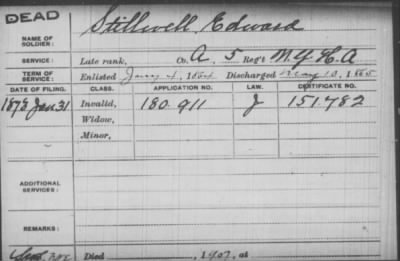 DEAD
NAME OF SOLDIER: Stillwell Edward
SERVICE: Late rank, Co. A, 5 Reg't N.Y.H.A
TERM OF SERVICE: Enlisted Jany 4, 1864 Discharged May 10, 1865
DATE OF FILING. CLASS. APPLICATION NO. LAW. CERTIFICATE NO.
1873 Jan. 31 Invalid, 180.911 J 151.782
Widow,
Minor,
ADDITIONAL SERVICES:
REMARKS:
Died , 1907, at